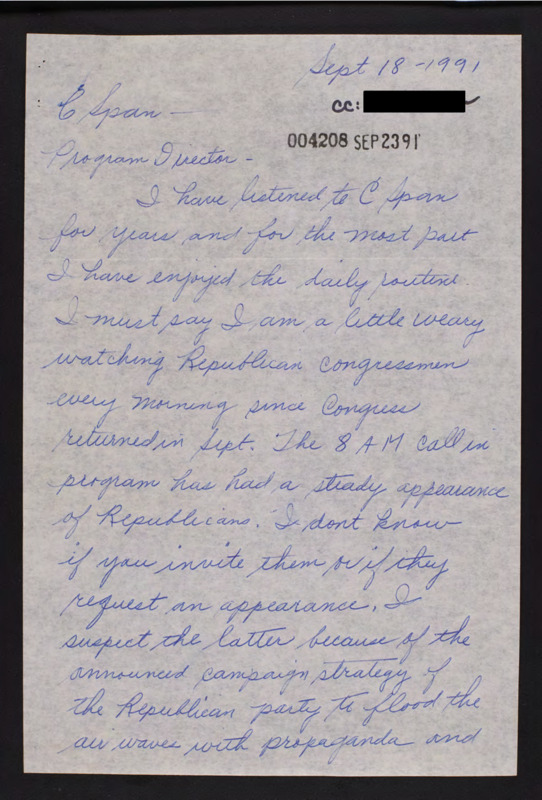 Sept 18-1991
C Span -
cc:
004208 SEP 23 91
Program Director -
I have listened to C Span
for years and for the most part
I have enjoyed the daily routine.
I must say I am a little weary
watching Republican congressmen
every morning since Congress
returned in Sept. The 8 A M call in
program has had a steady appearance
of Republicans. I dont know
if you invite them or if they
request an appearance. I
suspect the latter because of the
announced campaign strategy of
the Republican party to flood the
air waves with propaganda and